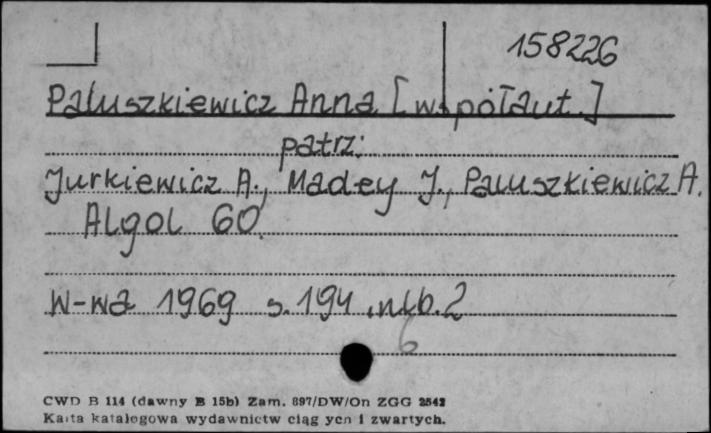 158226
Paluszkiewicz Anna [współaut.]
patrz:
Jurkiewicz A., Madey J., Paluszkiewicz A.
Algol 60.
W-wa 1969 s. 194, nlb. 2
6
CWD B 114 (dawny B 15b) Zam. 897/DW/On ZGG 2542
Karta katalogowa wydawnictw ciągłych i zwartych.